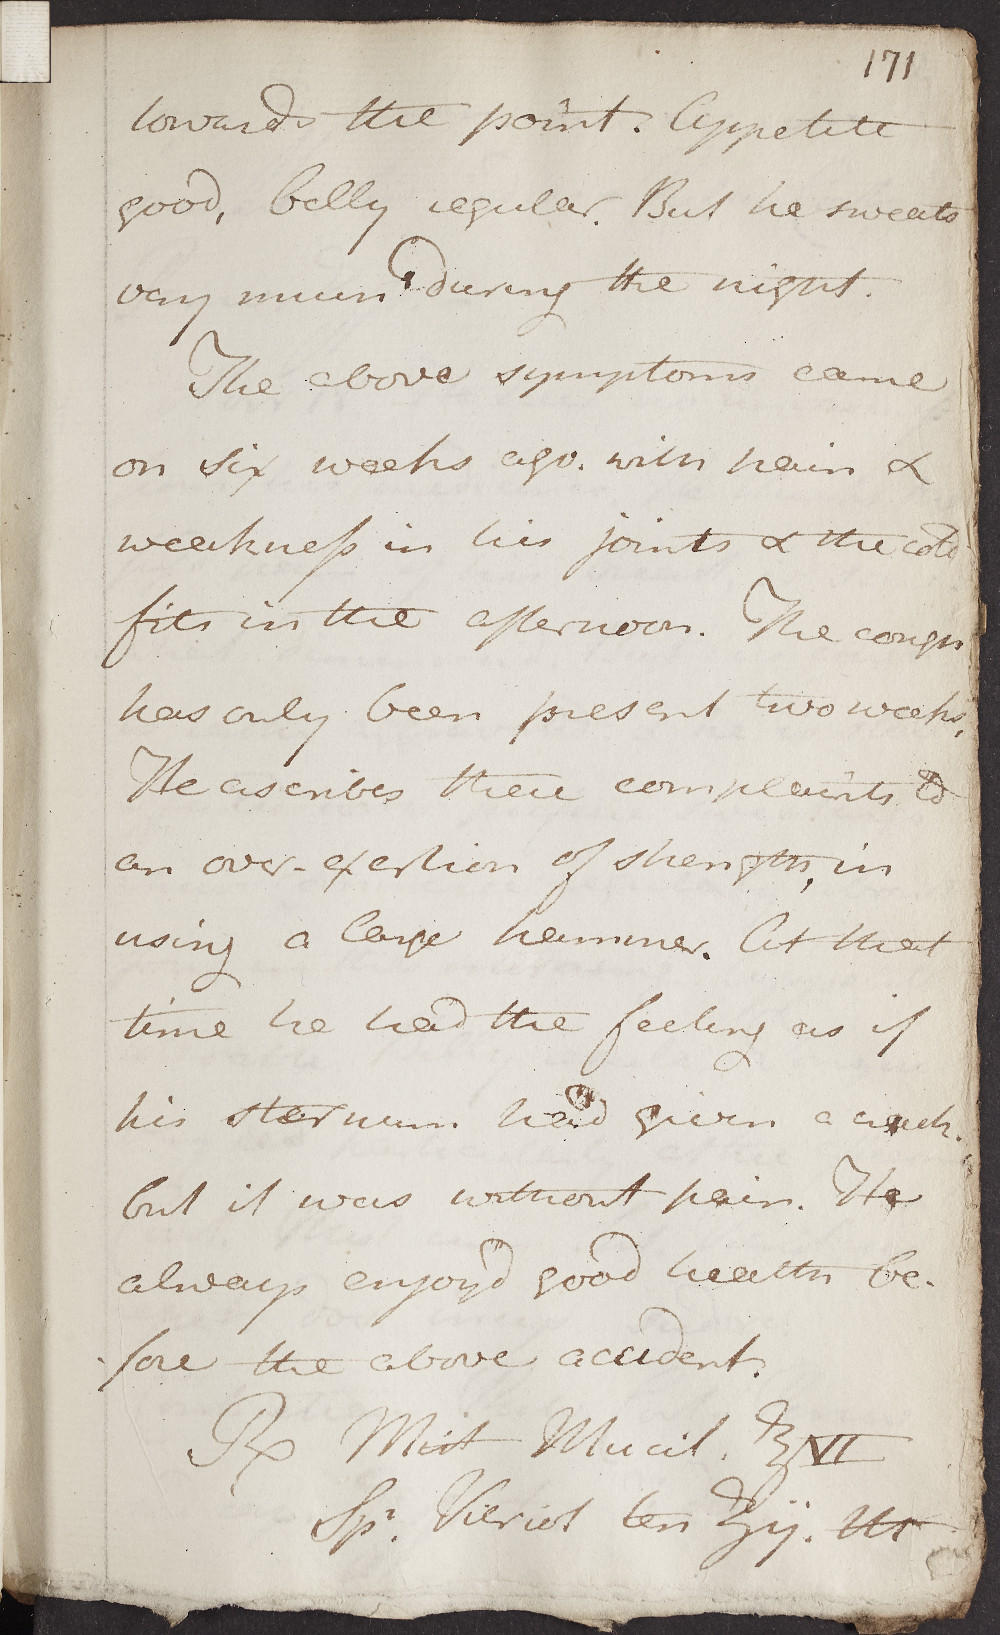 171
towards the point. Appetite
good, belly regular. But he sweats
very much during the night.
The above symptoms came
on six weeks ago. with pain &
weakneſs in his joints & the cold
fits in the afternoon. The cough
has only been present two weeks,
He ascribes these complaints to
an over-exertion of strength, in
using a large hammer. At that
time he had the feeling as if
his sternum had given a crack.
but it was without pain. He
always enjoy'd good health be-
fore the above accident.
℞ Mist Mucil. ℥VI
Spr. Vitriol ten ʒij. M